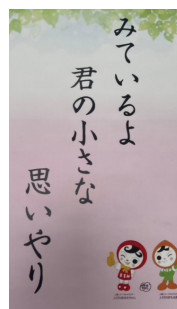 みているよ
君の小さな
思いやり